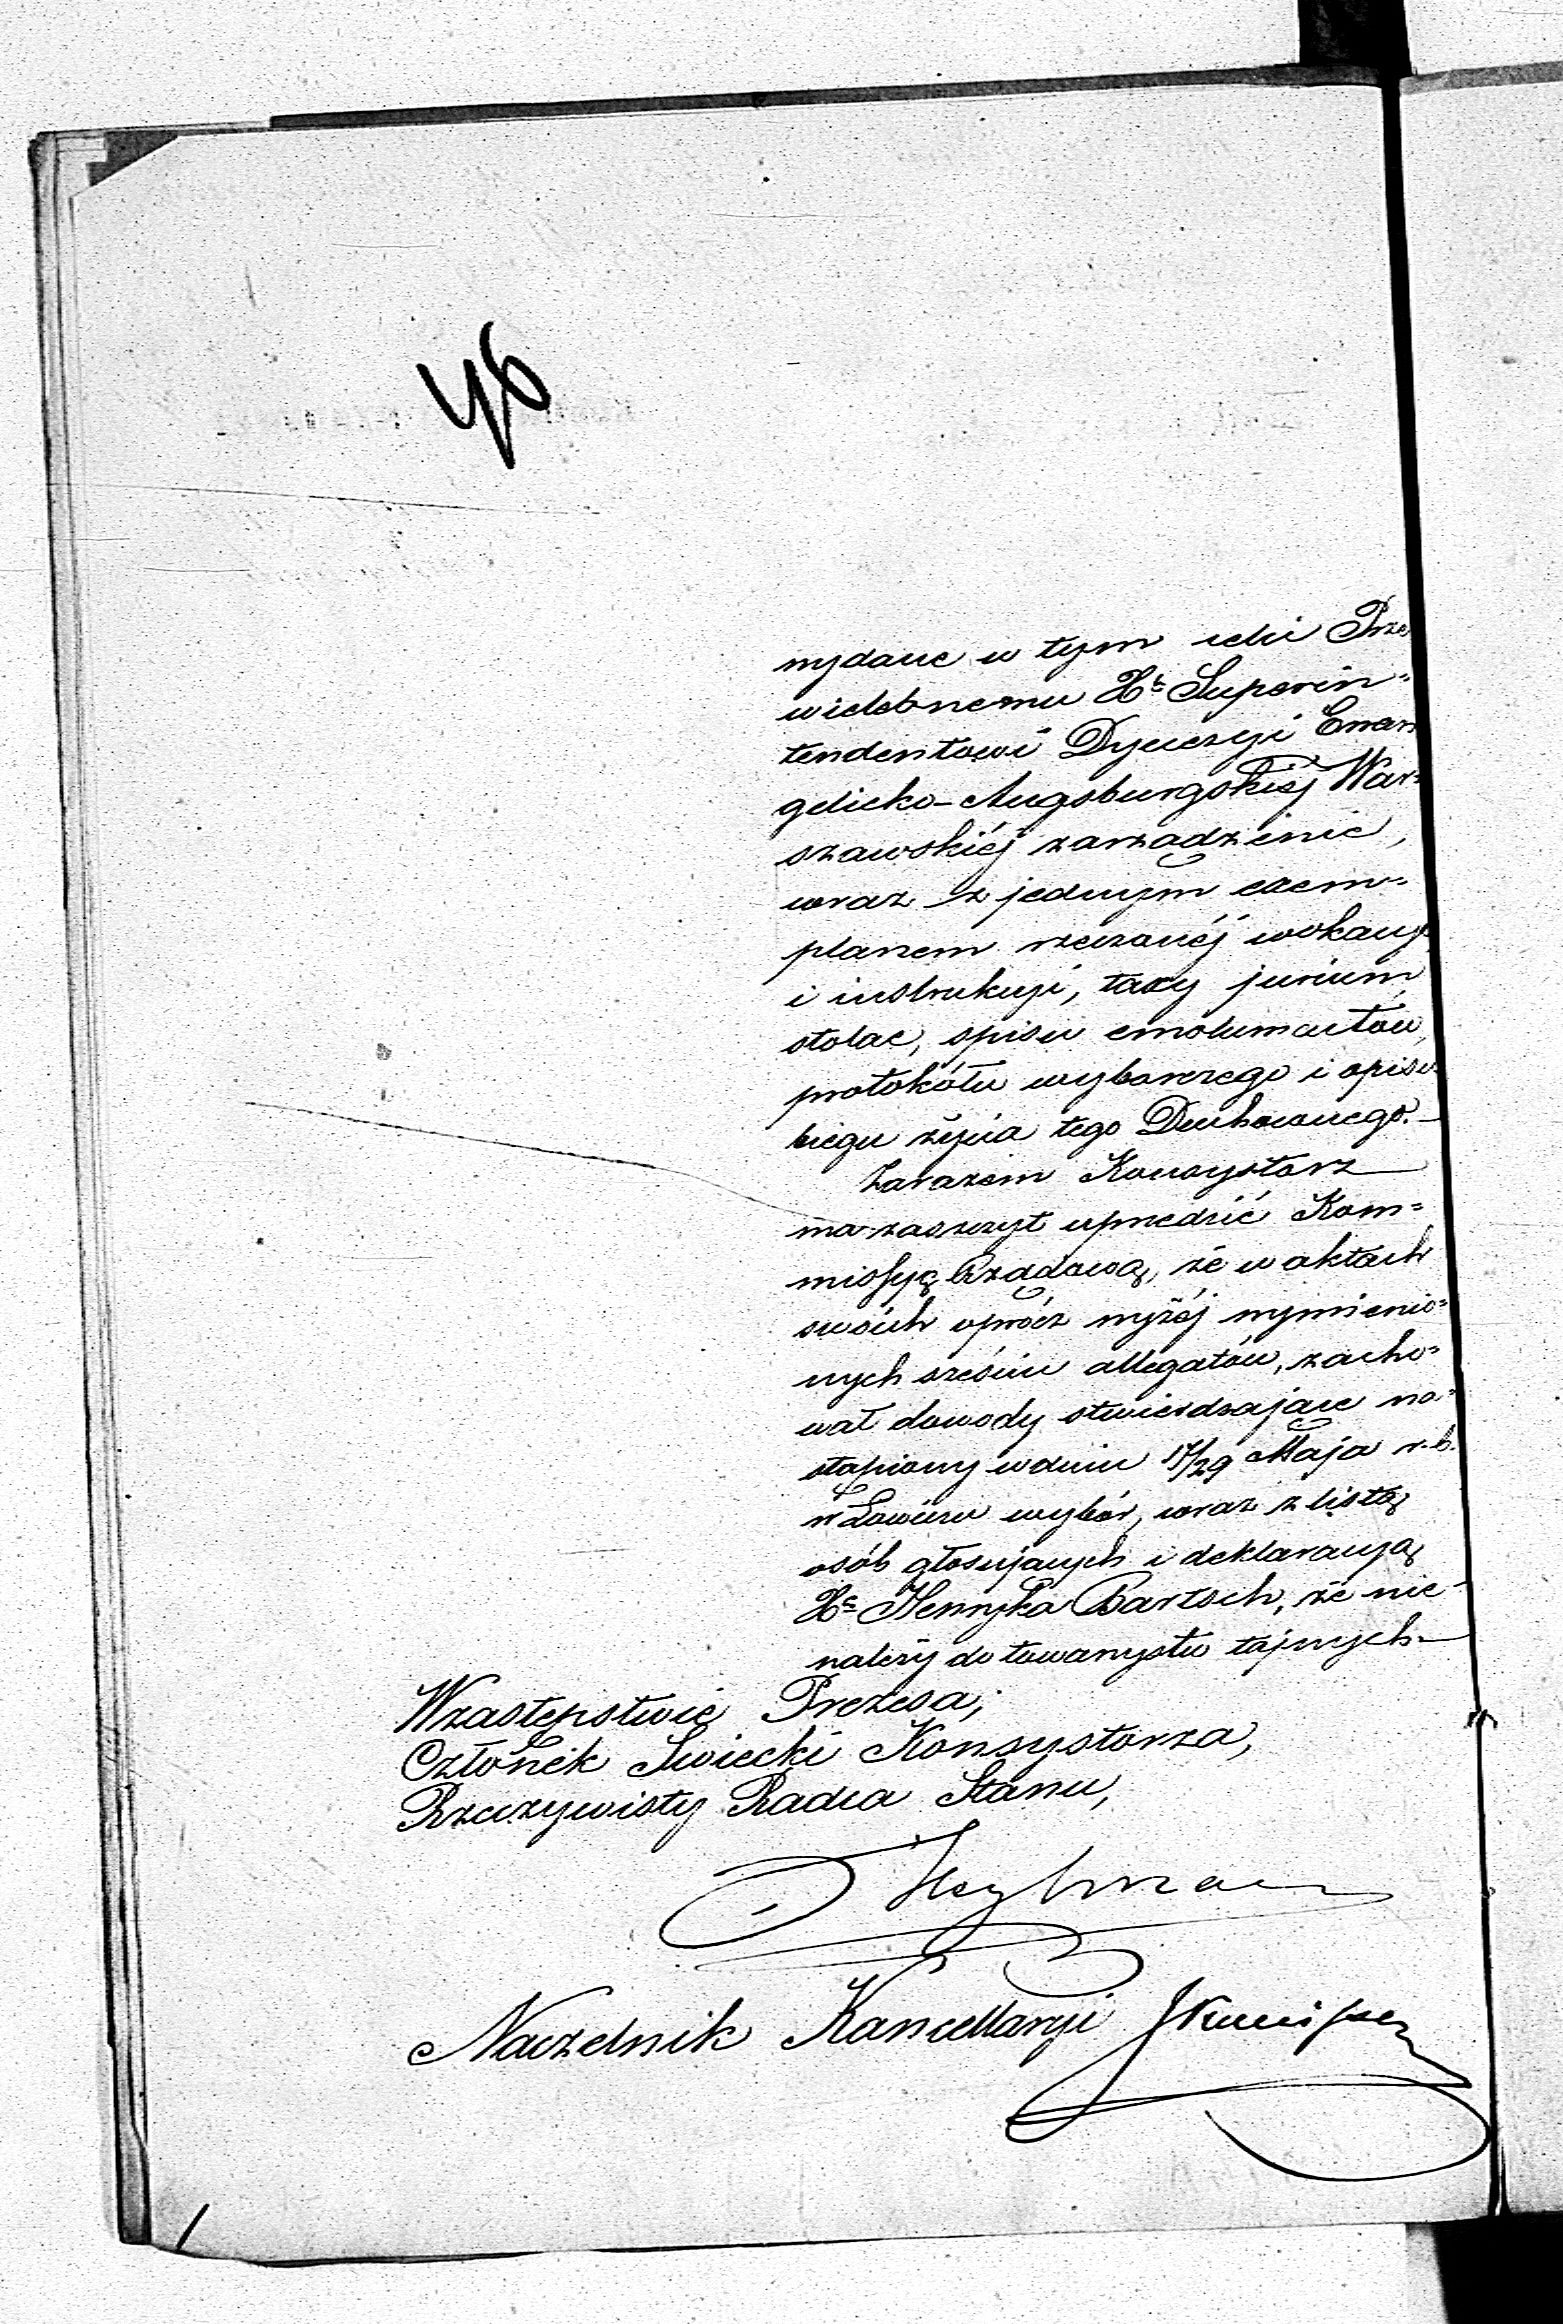 46
wydane w tym celu Prze
wielebnemu Xs Superin=
tendentowi Dyecezyi Ewan
gelicko-Augsburgskiéj War=
szawskiéj zarządzenie,
wraz z jednym exem=
plarzem rzeczonéj wokacyi
i instrukcyi, taxy jurium
stolae, spisu emolumentów,
protokółu wyborczego i opisu
biegu życia tego Duchownego.—
Zarazem Konsystorz
ma zaszczyt uprzedzić Kom=
missyą Rządową, że w aktach
swoich oprócz wyżéj wymienio=
nych sześciu allegatów, zacho=
wał dowody stwierdzające na=
stąpiony w dniu 17/29 Maja r.b.
w Łowiczu wybór, wraz z listą
osób głosujących i deklaracyą
Xs Henryka Bartsch, że nie-
należy do towarzystw tajnych—
W zastępstwie Prezesa;
Członek Świecki Konsystorza,
Rzeczywisty Radca Stanu,
Heylman
Naczelnik Kancellaryi